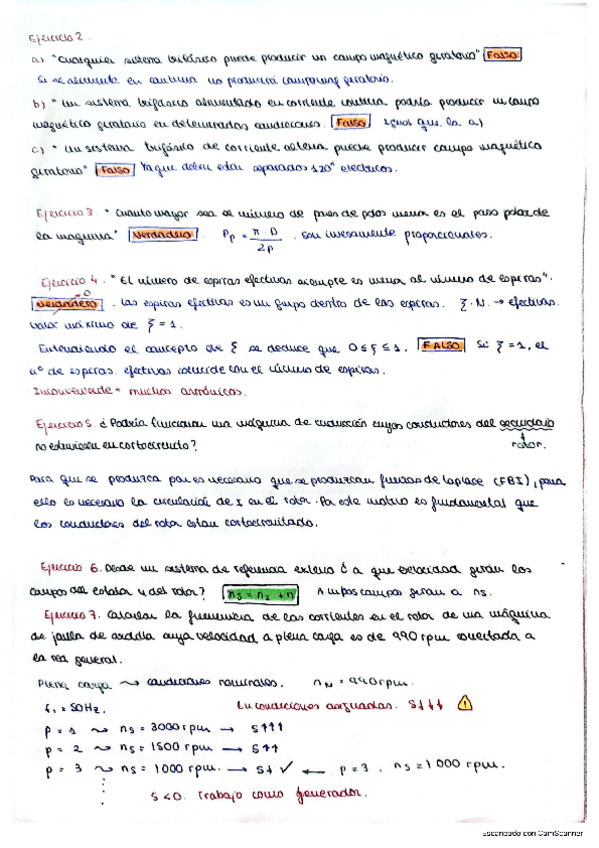 Ejercicio 2.
a) "Cualquier sistema trifásico puede producir un campo magnético giratorio" Falso
Si se alimenta en continua no producirá campo mag giratorio.
b) "Un sistema trifásico alimentado en corriente continua podría producir un campo
magnético giratorio en determinadas condiciones. Falso Igual que la a)
c) "Un sistema trifásico de corriente alterna puede producir campo magnético
giratorio" Falso Ya que deben estar separados 120° eléctricos.
Ejercicio 3. "Cuanto mayor sea el número de pares de polos menor es el paso polar de
la maquina" Verdadero . Pp = π · D / 2p . Son inversamente proporcionales.
Ejercicio 4. "El número de espiras efectivas siempre es menor al número de espiras".
Verdadero . Las espiras efectivas es un grupo dentro de las espiras. ξ · N. → efectivas.
Valor máximo de ξ = 1.
Entendiendo el concepto de ξ se deduce que 0 ≤ ξ ≤ 1. FALSO Si ξ = 1, el
nº de espiras efectivas coincide con el número de espiras.
Inconveniente = muchos armónicos.
Ejercicio 5. ¿Podría funcionar una máquina de inducción cuyos conductores del secundario
no estuviesen en cortocircuito? rotor.
Para que se produzca par es necesario que se produzcan fuerzas de Laplace (FBI), para
ello es necesario la circulación de I en el rotor. Por este motivo es fundamental que
los conductores del rotor estén cortocircuitado.
Ejercicio 6. Desde un sistema de referencia externo ¿a que velocidad giran los
campos del estator y del rotor? ns = n2 + n Ambos campos giran a ns.
Ejercicio 7. Calcular la frecuencia de las corrientes en el rotor de una máquina
de jaula de ardilla cuya velocidad a plena carga es de 990 rpm conectada a
la red general.
Plena carga ⤳ condiciones nominales. nN = 990 rpm.
f1 = 50Hz. En condiciones asignadas. S↓↓↓ ⚠
p = 1 ⤳ ns = 3000 rpm → S↑↑↑
p = 2 ⤳ ns = 1500 rpm → S↑↑
p = 3 ⤳ ns = 1000 rpm. → S↓ ✓ ← p = 3 , ns = 1000 rpm.
S<0. Trabajo como generador.
Escaneado con CamScanner